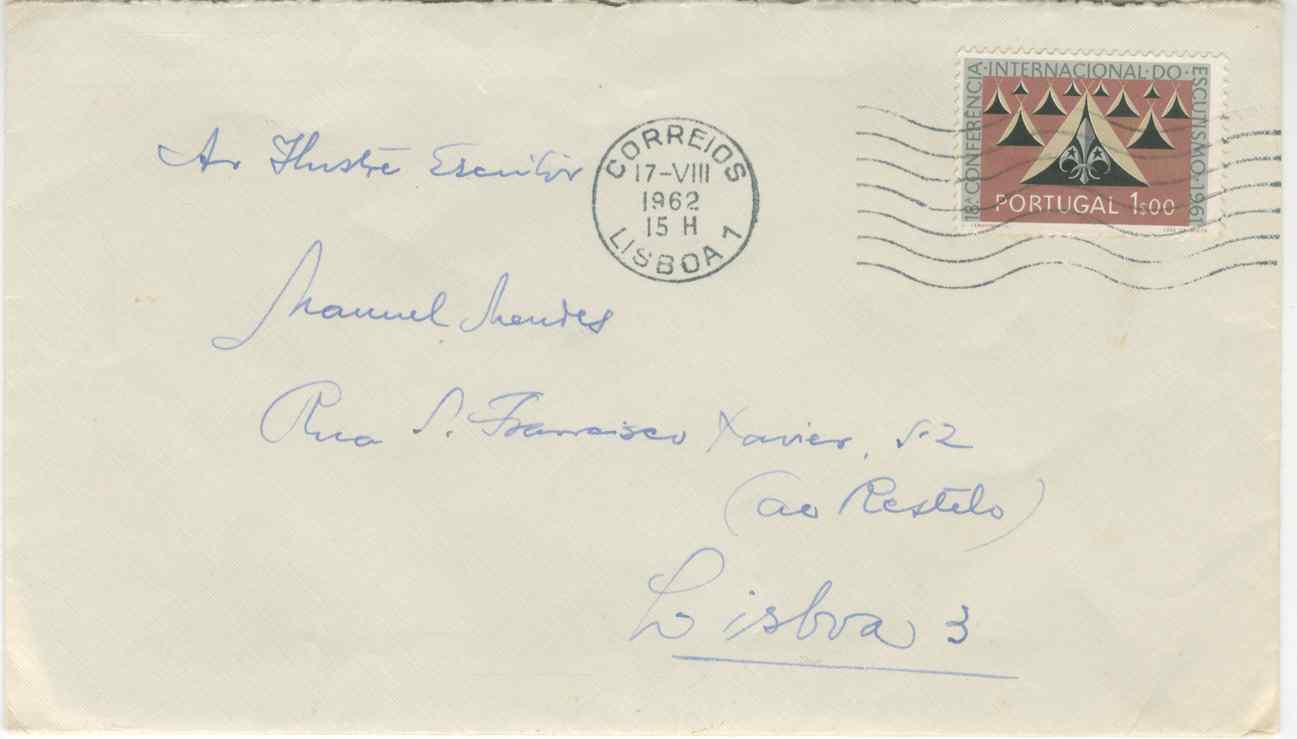 Ao Ilustre Escritor
Manuel Mendes
Rua S. Francisco Xavier,
(ao Restelo)
Lisboa 3
CORREIOS
17-VIII
1962
15 H
LISBOA 1
18ª CONFERÊNCIA·INTERNACIONAL·DO·ESCUTISMO·1961
PORTUGAL 1$00